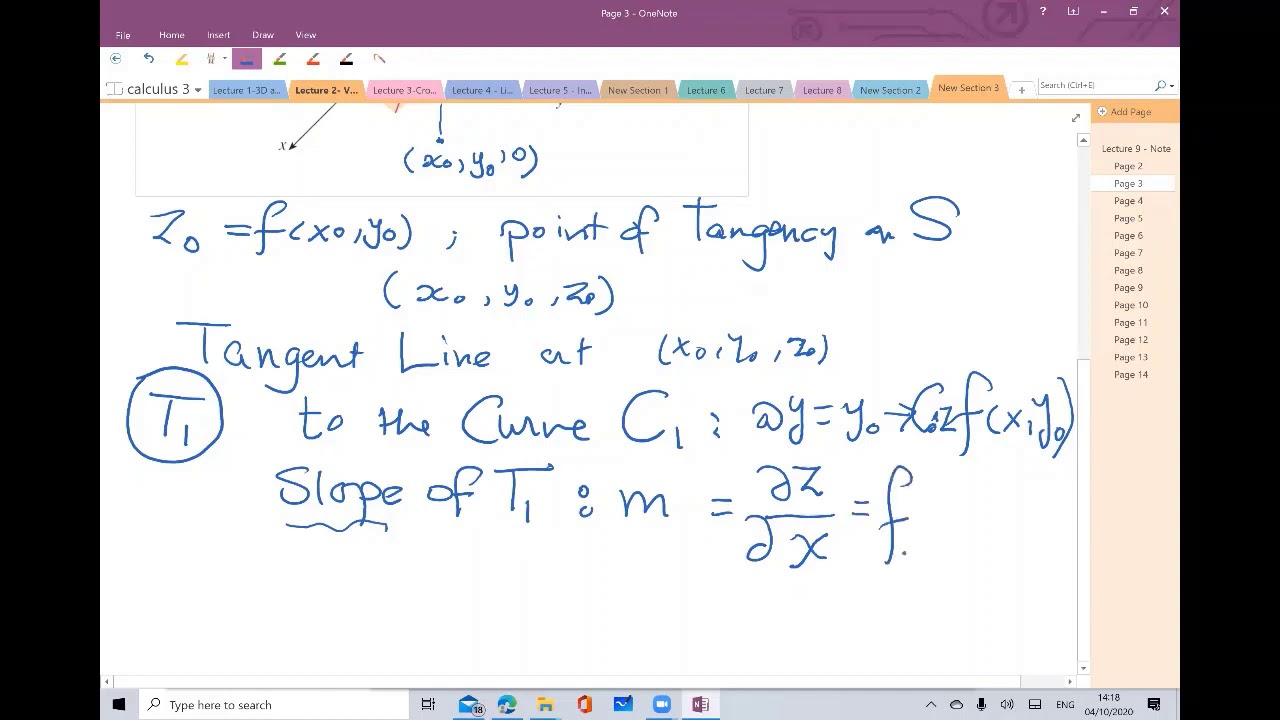 Page 3 - OneNote
?
File Home Insert Draw View
calculus 3
Lecture 1-3D a... Lecture 2- V... Lecture 3-Cro... Lecture 4 - Li... Lecture 5 - In... New Section 1 Lecture 6 Lecture 7 Lecture 8 New Section 2 New Section 3 +
Search (Ctrl+E)
Add Page
Lecture 9 - Note
Page 2
Page 3
Page 4
Page 5
Page 6
Page 7
Page 8
Page 9
Page 10
Page 11
Page 12
Page 13
Page 14
x
(x₀, y₀, 0)
Z₀ = f(x₀, y₀) ; point of Tangency on S
(x₀, y₀, z₀)
Tangent Line at (x₀, y₀, z₀)
T₁ to the Curve C₁ : @ y = y₀ → C₁: z f(x, y₀)
Slope of T₁ : m = ∂z/∂x = f
Type here to search
18
ENG
14:18
04/10/2020